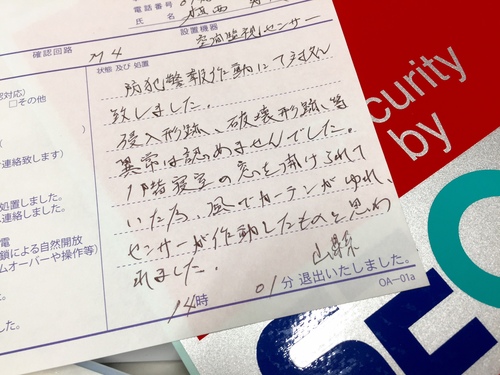 電話番号
氏名
設置機器
確認回路 M4 空間監視センサー
状態 及び 処置
防犯警報作動にて対処
致しました。
侵入形跡、破壊形跡等
異常は認めませんでした。
1階寝室の窓を開けられて
いた為、風でカーテンがゆれ、
センサーが作動したものと思わ
れました。
14時 01分 退出いたしました。
OA-01a
対応)
□その他
連絡致します)
処置しました。
連絡しました。
電
鎖による自然開放
ムオーバーや操作等)
した。
ました。
curity
by
SECO